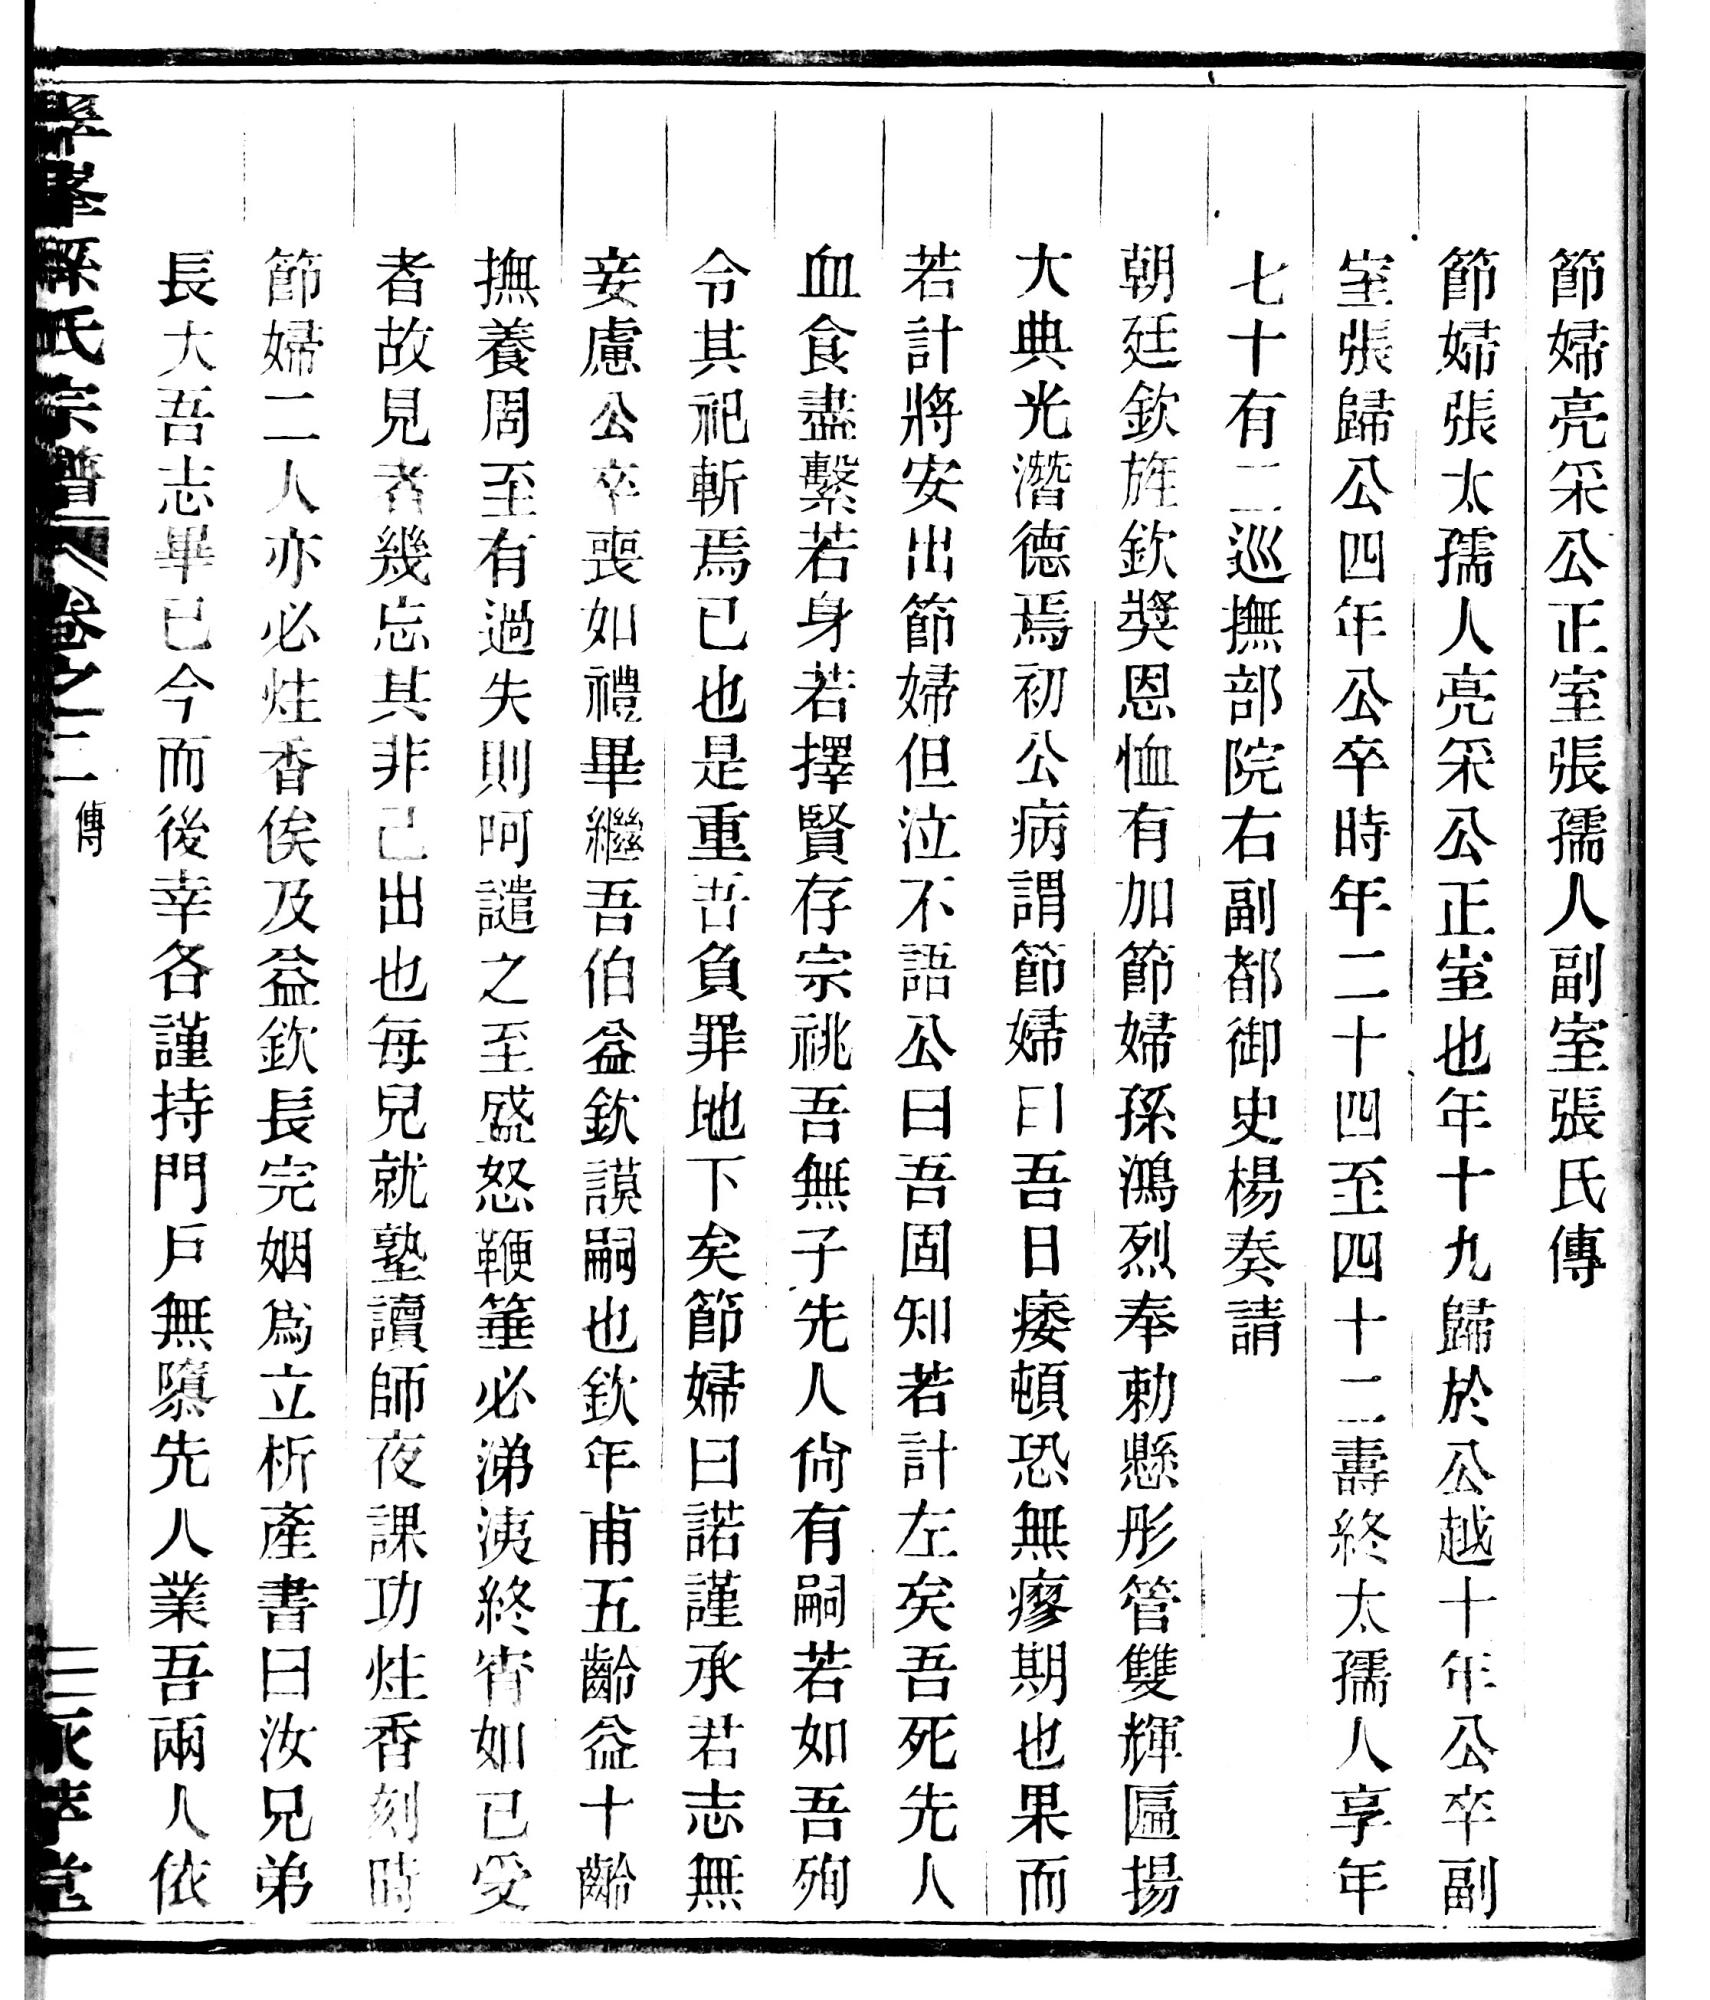 節婦亮采公正室張孺人副室張氏傳
節婦張太孺人亮采公正室也年十九歸於公越十年公卒副
室張歸公四年公卒時年二十四至四十二壽終太孺人享年
七十有二巡撫部院右副都御史楊奏請
朝廷欽旌欽獎恩恤有加節婦孫鴻烈奉勅懸彤管雙輝匾揚
大典光潛德焉初公病謂節婦曰吾日痿頓恐無瘳期也果而
若計將安出節婦但泣不語公曰吾固知若計左矣吾死先人
血食盡繫若身若擇賢存宗祧吾無子先人尙有嗣若如吾殉
令其祀斬焉已也是重吾負罪地下矣節婦曰諾謹承君志無
妾慮公卒喪如禮畢繼吾伯益欽謨嗣也欽年甫五齡益十齡
撫養周至有過失則呵譴之至盛怒鞭箠必涕洟終宵如已受
者故見者幾忘其非己出也每兒就塾讀師夜課功炷香刻時
節婦二人亦必炷香俟及益欽長完姻爲立析產書曰汝兄弟
長大吾志畢已今而後幸各謹持門戶無隳先人業吾兩人依
峯孫氏宗譜 卷之二 傳 二 永萃堂